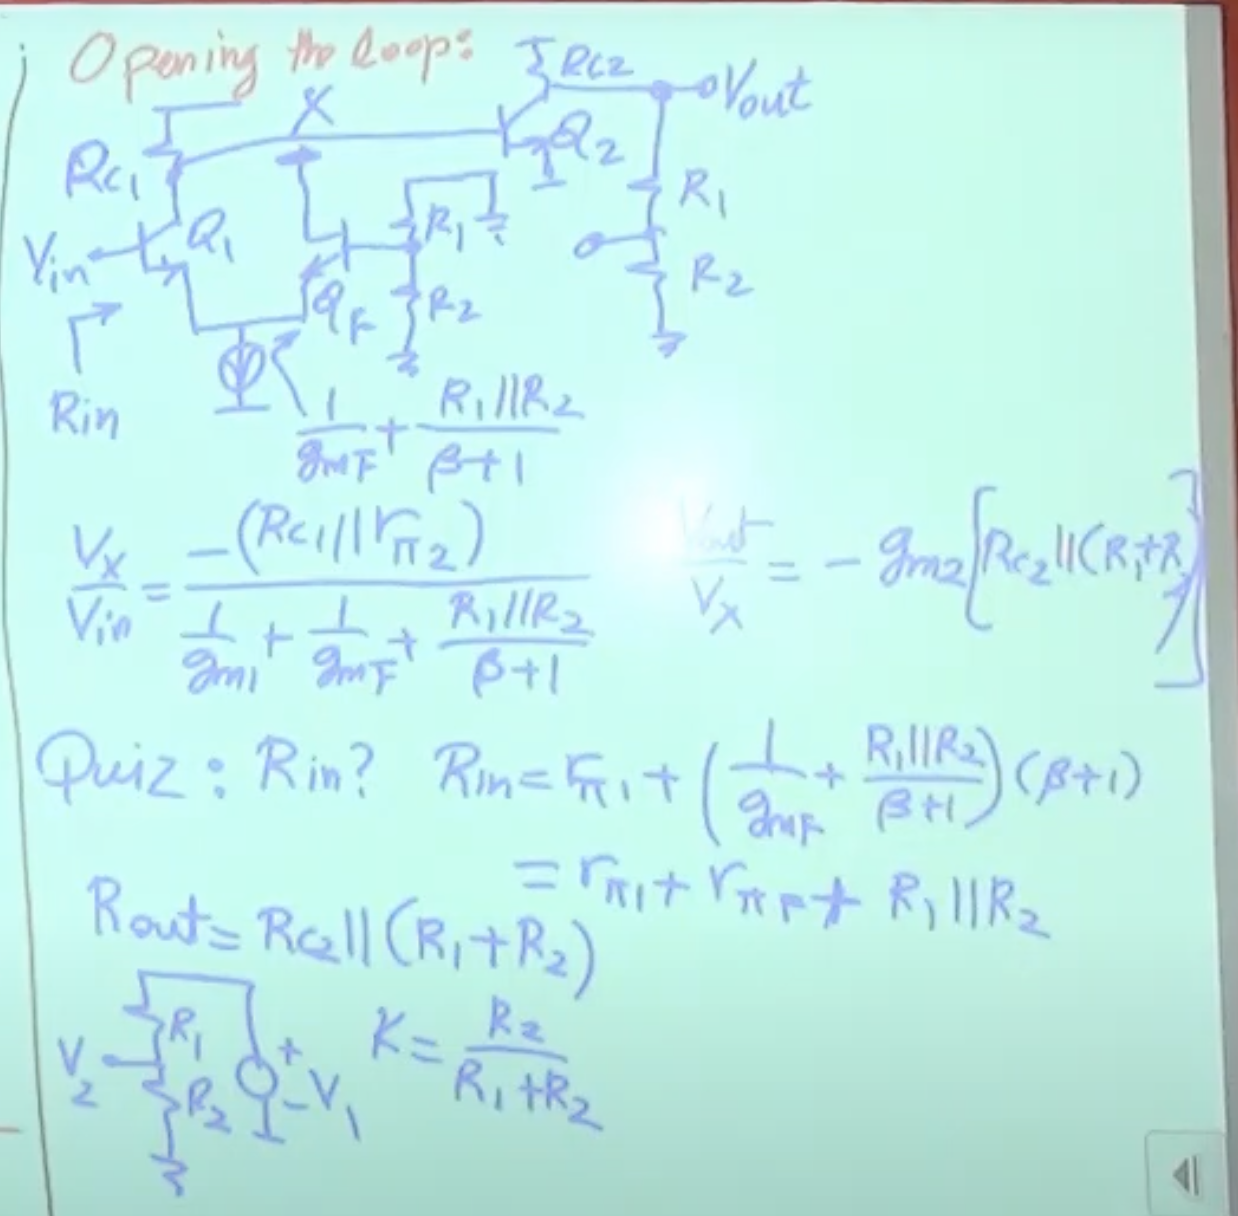 Opening the loop:
RC2
Vout
X
RC1
Q2
R1
Vin
Q1
R1
R2
QF
R2
Rin
1/gmF + R1||R2/β+1
Vx/Vin = -(RC1||rπ2) / 1/gm1 + 1/gmF + R1||R2/β+1
Vout/Vx = - gm2[RC2||(R1+R
Quiz: Rin? Rin = rπ1 + (1/gmF + R1||R2/β+1)(β+1)
= rπ1 + rπF + R1||R2
Rout = RC2||(R1+R2)
R1
V2
R2
+
-
V1
K = R2/R1+R2